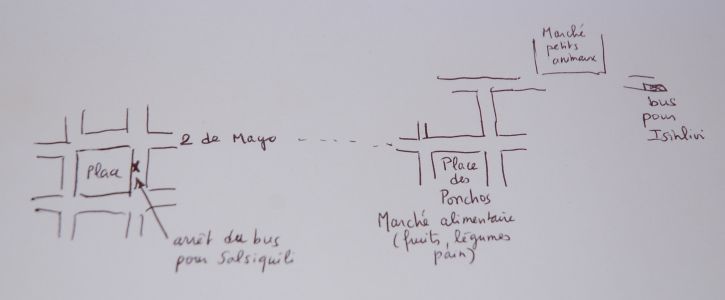 Marché
petits
animaux
bus
pour
Isinlivi
2 de Mayo
Place
Place
des
Ponchos
Marché alimentaire
(fruits, légumes
pain)
arrêt du bus
pour Salsiquili